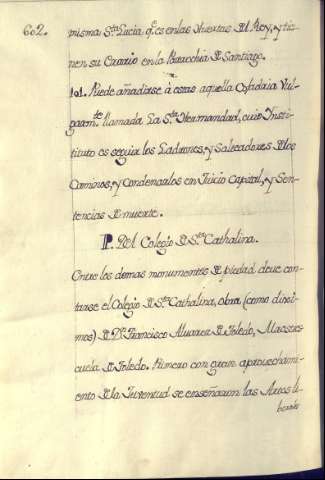 602.
misma Sta. Lucia qe. es en las Huertas del Rey, y tie-
nen su Erario en la Parrochia de Santiago.
101. Puede añadirse à estas aquella Cofradia Vul-
garmte. llamada La Sta. Hermandad, cuio Insti-
tituto es seguir los Ladrones, y Salteadores de los
Caminos, y Condenarlos en Juicio Capital, y Sen-
tencias de muerte.
P. Del Colegio de Sta. Cathalina.
Entre los demas monumentos de piedad deve con-
tarse el Colegio de Sta. Cathalina, obra (como dixi-
mos) de Dn. Francisco Alvarez de Toledo, Maestres-
cuela de Toledo. Primero con gran aprovechami-
ento de la Juventud se enseñaron las Artes li-
berales